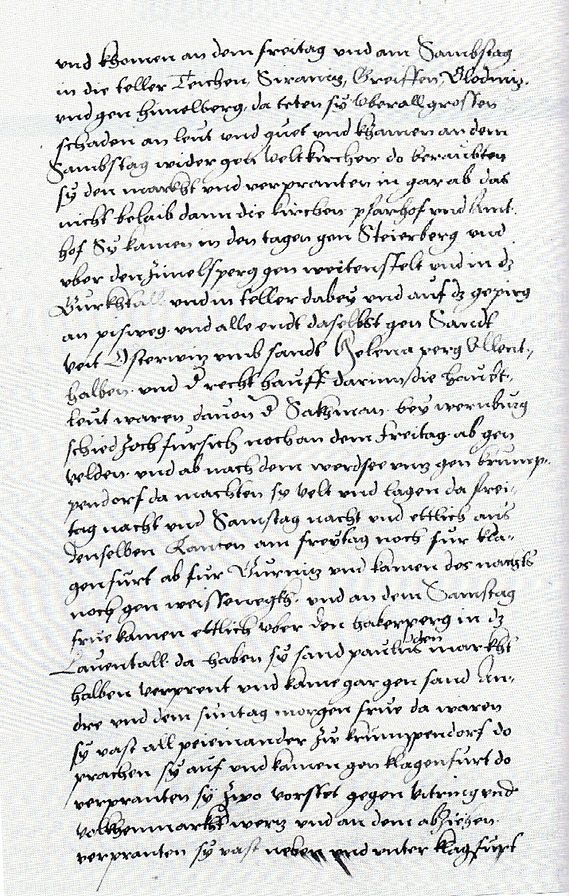 vnd khomen an dem freitag vnd am Sambstag
in die teller Teichen, Siranitz, Greiffen, Glodnitz,
vnd gen himelberg, da teten sÿ vberall grossen
schaden an leut vnd guet vnd khamen an dem
Sambstag wider gen veltkirchen do beraubten
sÿ den markht vnd verpranten in gar ab das
nicht belaib dann die kirchen pfarhof vnd Amt-
hof Sÿ kamen in den tagen gen Steierberg vnd
vber den Zimelsperg gen weitensfelt vnd in dz
Gurkhtall vnd in teller dabeÿ vnd auf dz gepirg
an pisweg. vnd alle endt daselbst gen Sandt
veit Osterwitz vmb sandt Helena perg Allent-
halben vnd d recht hauff darinn die haubt-
leut waren dauon d Sakhman beÿ wernburg
schied Zoch fursich noch an dem freitag ab gen
velden. vnd ab nach dem werdsee vntz gen krump-
pendorf da machten sy velt vnd lagen da frei-
tag nacht vnd Samstag nacht vnd ettlich aus
denselben Ranten am freytag noch fur kla-
genfurt ab fur Gurnitz vnd kamen des nachts
noch gen weissenegkh. vnd an dem Samstag
frue kamen ettlich vber den hakerperg in dz
Lauentall da haben sÿ sand pauls den markht
halben verprent vnd kame gar gen sand An-
dre vnd dem suntag morgen frue da waren
sÿ vast all peieinander Zw krumppendorf do
prachen sÿ auf vnd kamen gen klagenfurt do
verpranten sÿ Zwo vorstet gegen vitring vnd
volkhenmarkht wertz vnd an dem abZiehen
verpranten sÿ vast neben vnd vnter klagfurt